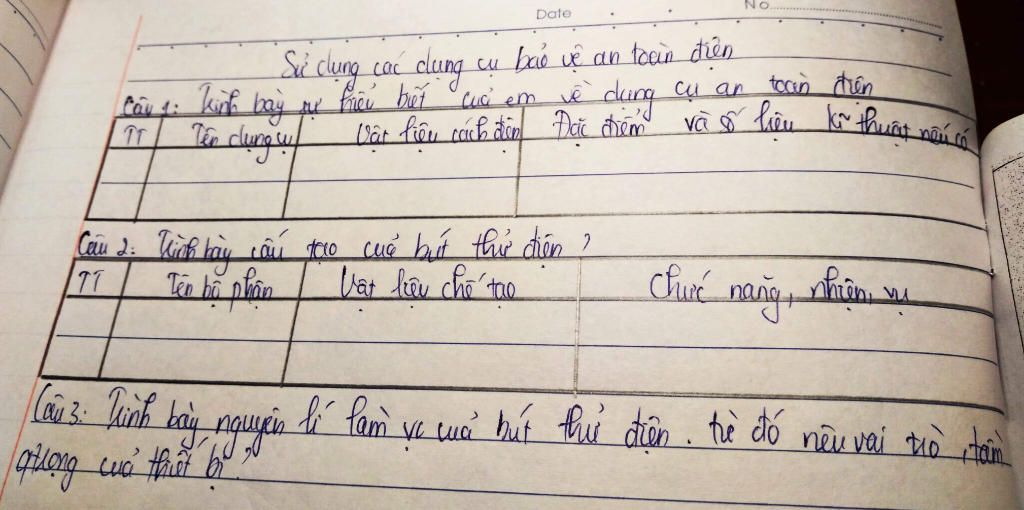 Date
No
Sử dụng các dụng cụ bảo vệ an toàn điện
Câu 1: Trình bày sự hiểu biết của em về dụng cụ an toàn điện
TT Tên dụng cụ Vật liệu cách điện Đặc điểm và số liệu kĩ thuật nếu có
Câu 2: Trình bày cấu tạo của bút thử điện ?
TT Tên bộ phận Vật liệu chế tạo Chức năng, nhiệm vụ
Câu 3: Trình bày nguyên lí làm vc của bút thử điện. từ đó nêu vai trò, tầm
qtrọng của thiết bị ?